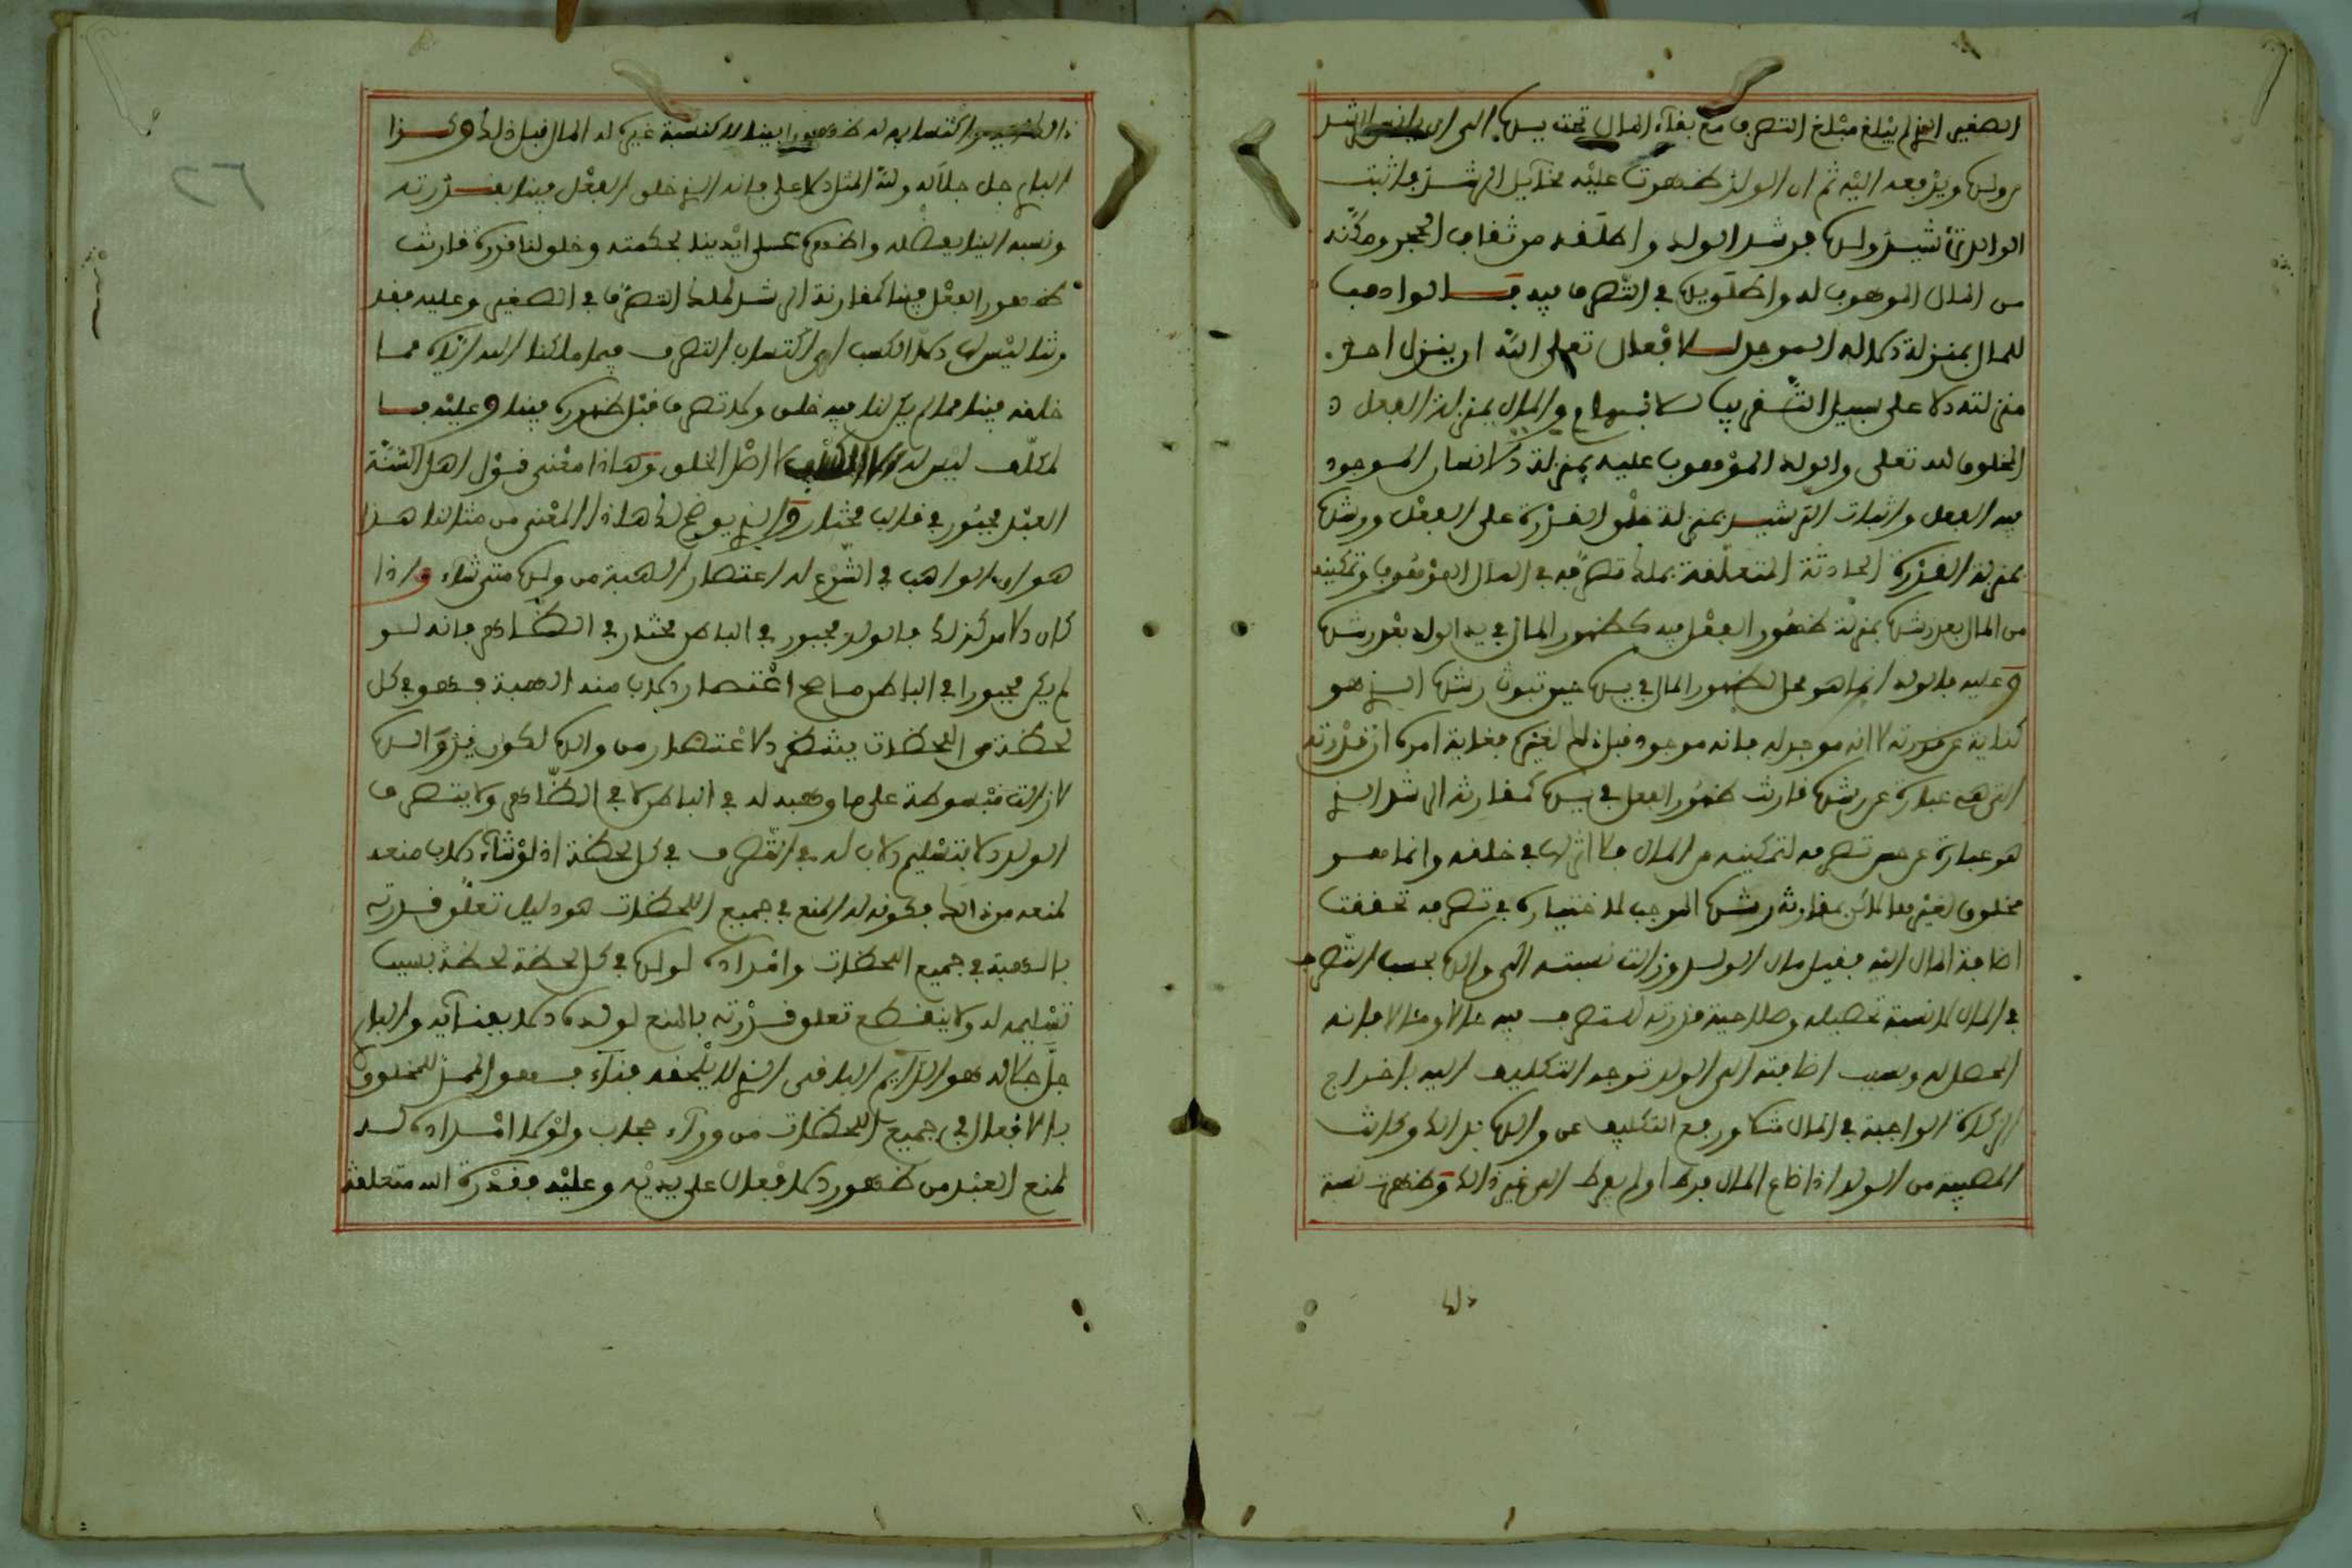 الصغير الذي لم يبلغ مبلغ التصرف مع بقآء المال تحته بيده الى ان
ولده ويدفعه اليه ثم ان الولد ظهرت عليه مخآيل الرشد فاثبت
الوالد ترشيد ولده فرشد الولد واطلقه من ثقاف الحجر ومكّنه
من المال الموهوب له واطلق يده في التصرف فيه فالواهب
للمال بمنزلة الاله الموجد للافعال تعلى الله ان ينزل احد
منزلته الا على سبيل التقريب للافهام والمال بمنزلة الفعل
المخلوق لله تعلى والولد الموهوب عليه بمنزلة الانسان الموجود
فيه الفعل واثبات الترشيد بمنزلة خلق القدرة على الفعل ورشده
بمنزلة القدرة الحادثة المتعلقة بملك تصرفه في المال الموهوب وتمكينه
من المال بعد رشده بمنزلة ظهور الفعل فيه كظهور المال في يد الولد بعد رشده
وعليه فالولد انما هو محل لظهور المال في يده حين ثبوت رشده الذي هو
كناية عن قدرته لا انه موجد له فانه موجود قبل ذلك لغيره فغاية امره ان قدرته
التي هي عبارة عن رشده قارنت ظهور الفعل في يده كمقارنة الرشد الذي
هو عبارة عن حسن تصرفه لتمكينه من المال فلا اثر لها في خلقه وانما هو
مخلوق لغيره بمقارنة رشده الموجب لاختياره في تصرفه تحققت
اضافة المال اليه فقيل مال الولد وزالت نسبته الى والده بحسب التصرف
في المال لا نسبة تحصيله وصلاحية قدرته للتصرف فيه حالا ومآلا فانه
المحصل له وبسبب اضافته الى الولد توجه التكليف اليه باخراج
الزكاة الواجبة في المال مثلا ورفع التكليف عن والده بذالك وكانت
المصيبة من الولد اذا ضاع المال فرط او لم يفرط الى غير ذالك وظهرت نسبة
ذلك
اكتسابه له ظهورا بينا لا كنسبة غيره له المال قبل ذلك وكذا
البارئ جل جلاله ولله المثل الاعلى فانه الذي خلق الفعل فينا بقدرته
ونسبه الينا بفضله واظهره على ايدينا بحكمته وخلق لنا قدرة قارنت
ظهور الفعل فينا كمقارنة الرشد لملك التصرف في الصغير وعليه فقد
لنا ليس الا الكسب اى اكتساب التصرف فيما ملكنا الله اياه مما
خلقه فينا مما لم يكن لنا فيه خلق ولا تصرف قبل ظهوره فينا وعليه فالـ
مكلّف ليس له الا الكسب لا اصل الخلق وهاذا معنى قول اهل السنة
العبد مجبور في قالب مختار والذي يوضح لك هاذا المعنى من مثالنا هذا
هو ان الواهب في الشرع له اعتصار الهبة من ولده متى شاء واذا
كان الامر كذلك فالولد مجبور في الباطن مختار في الظاهر فانه لو
لم يكن مجبورا في الباطن ما صح اعتصار الاب منه الهبة فهو في كل
لحظة من اللحظات ينتظر الاعتصار من والده لكون يد والده
لازالت مبسوطة على ما وهبه له في الباطن لا في الظاهر ولا يتصرف
الولد الا بتسليم الاب له في التصرف في كل لحظة اذ لو شآء الاب منعه
لمنعه من ذالك فكونه له المنع في جميع اللحظات هو دليل تعلق قدرته
بالهبة في جميع اللحظات وامداده لولده في كل لحظة لحظة بسبب
تسليمه له ولا ينقطع تعلق قدرته بالمنع لولده الا بفنآئه والبارئ
جل جلاله هو الدآيم الباقى الذي لا يلحقه فنآء فهو الممد للمخلوق
بالافعال في جميع اللحظات من ورآء حجاب ولولا امداده له
لمنع العبد من ظهور الافعال على يديه وعليه فقدرة الله متعلقة
٢٦